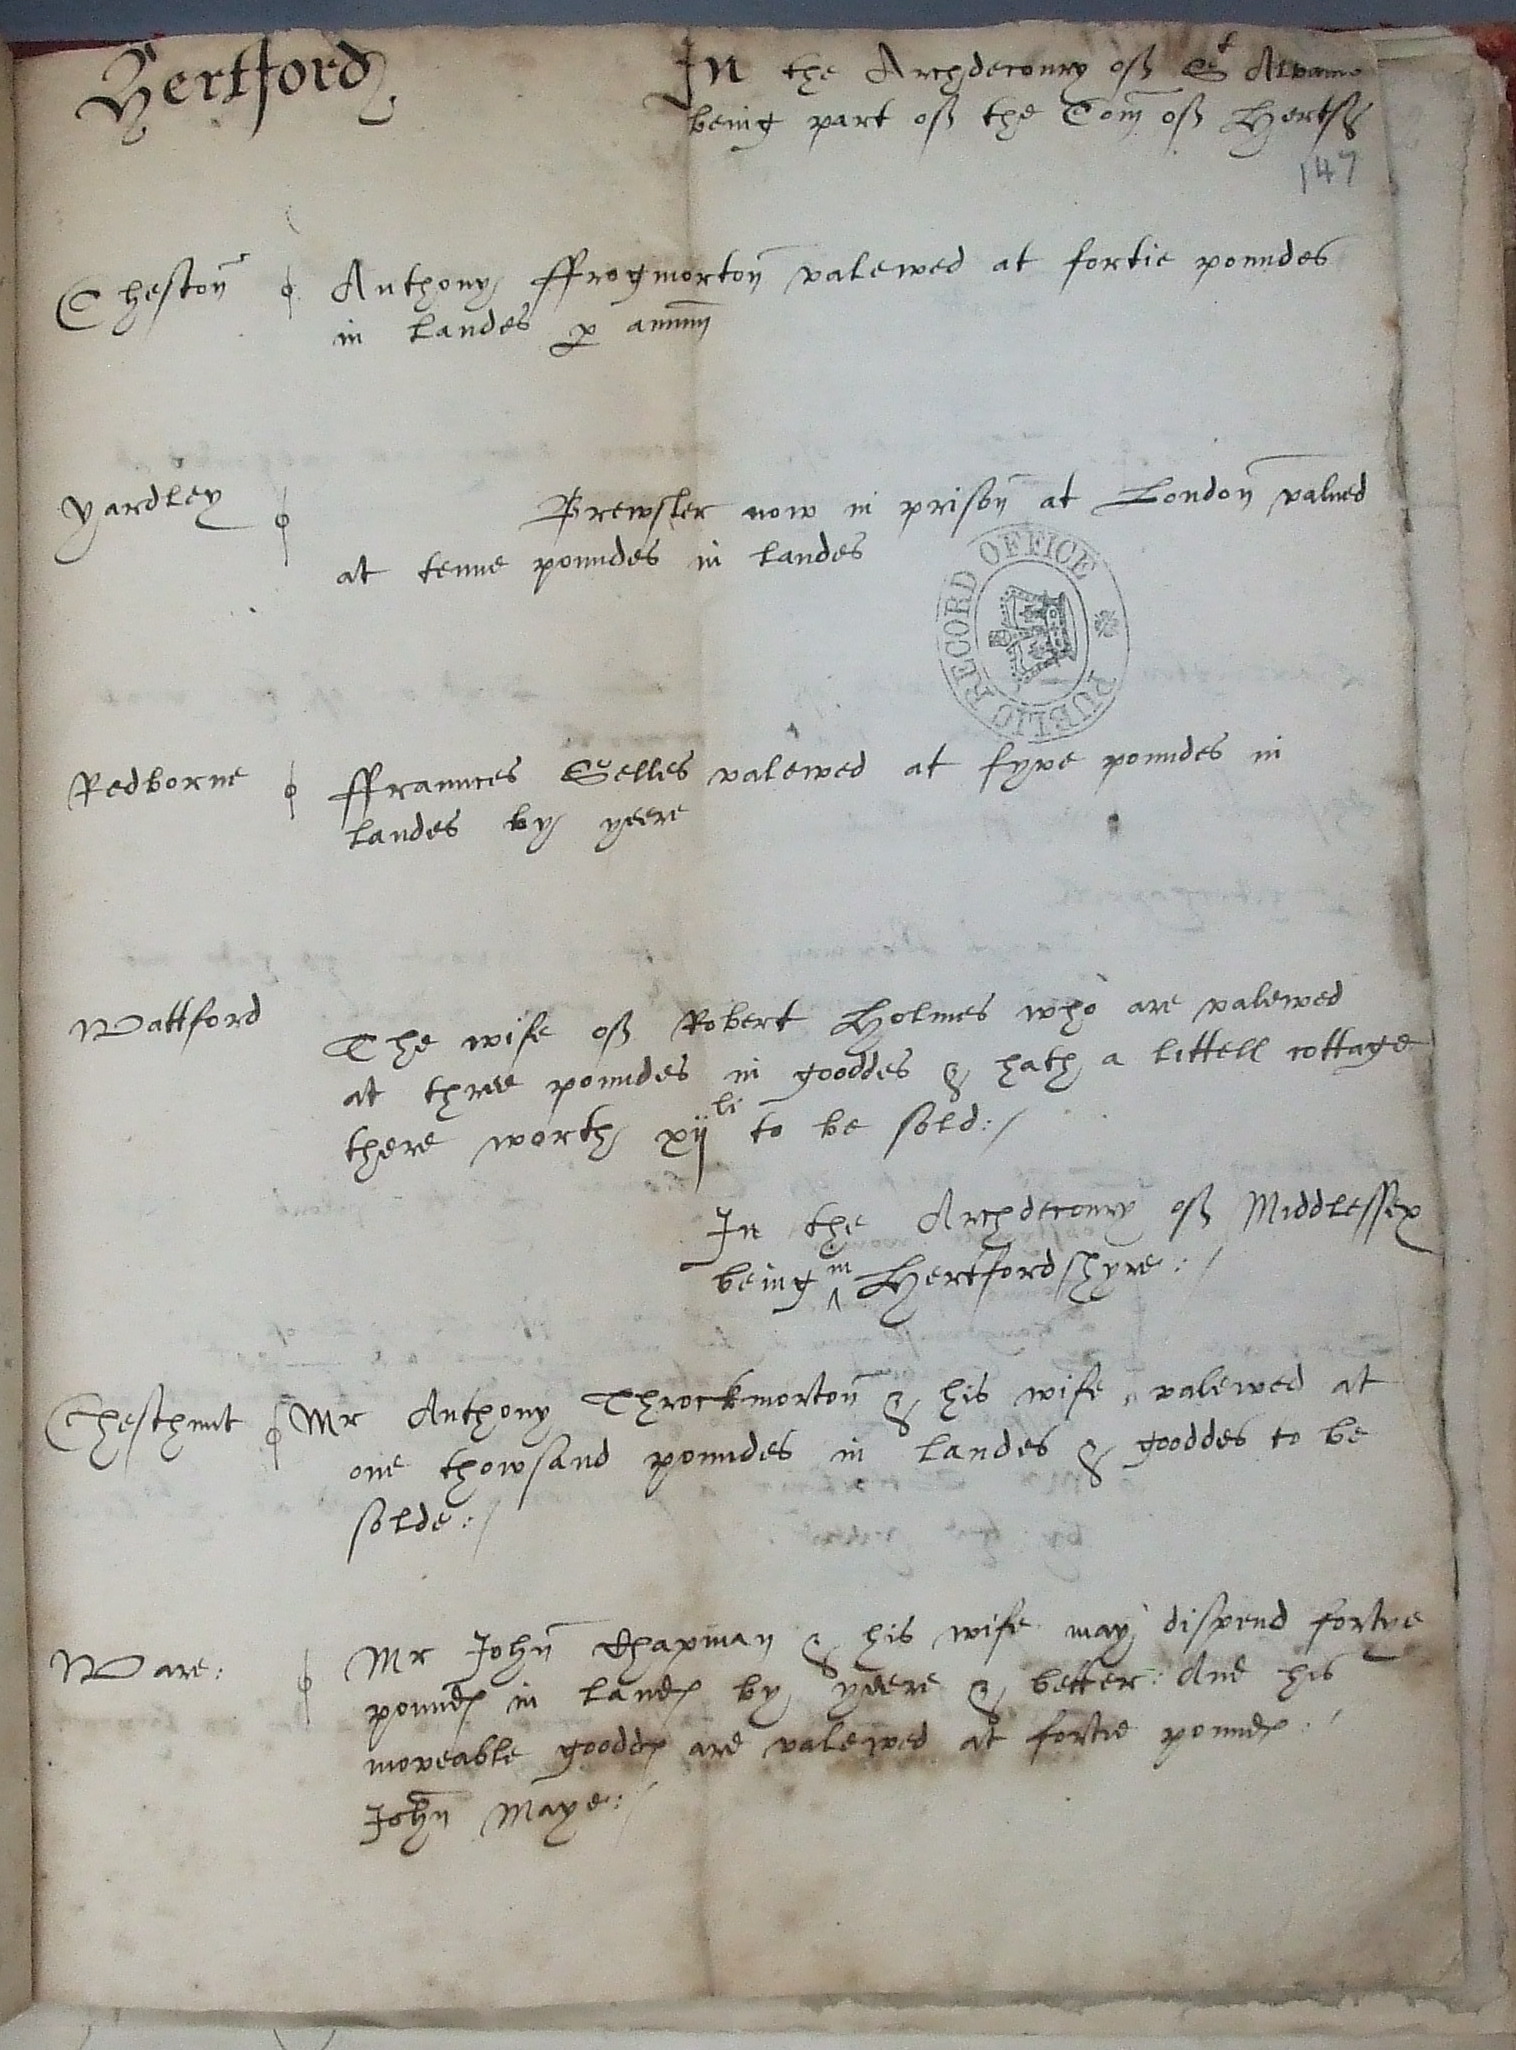 Hertford
In the Archdeconry off St Albans
being part off the Com off Hertf
147
Cheston Anthony ffrogmorton valewed at fortie poundes
in landes p annum
Yardley Brewster now in prison at London valued
at tenne poundes in landes
PUBLIC RECORD OFFICE
Redborne ffraunces Selles valewed at fyve poundes in
landes by yeere
Wattford The wife off Robert Holmes who are valewed
at three poundes in gooddes & hath a littell cottage
there worth xij li to be sold:/
In the Archdeconry off Middlessex
being in Hertfordshyre:/
Chesthunt Mr Anthony Throckmorton & his wife valewed at
one thowsand poundes in landes & gooddes to be
solde:/
Ware: Mr John Chapman & his wife may dispend fortye
poundes in landes by yeere & better: And his
moveable gooddes are valewed at fortie poundes:/
John Maye:/